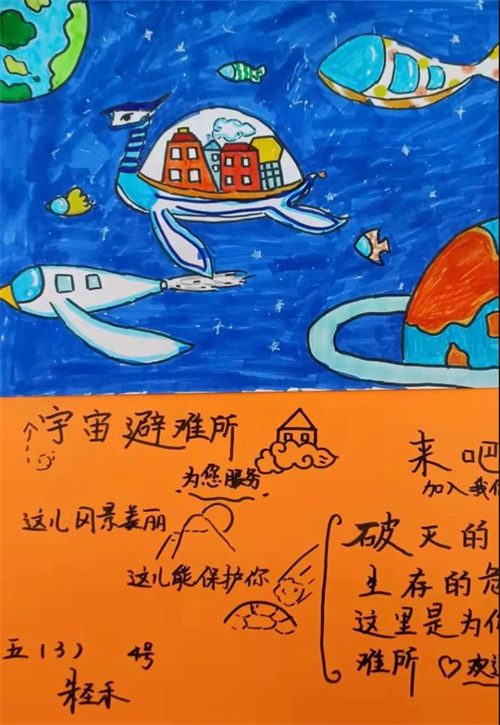 宇宙避难所
为您服务
这儿风景美丽
这儿能保护你
五(3) 4号
来吧
加入我们
破灭的
生存的危
这里是为你
难所 ♡欢迎